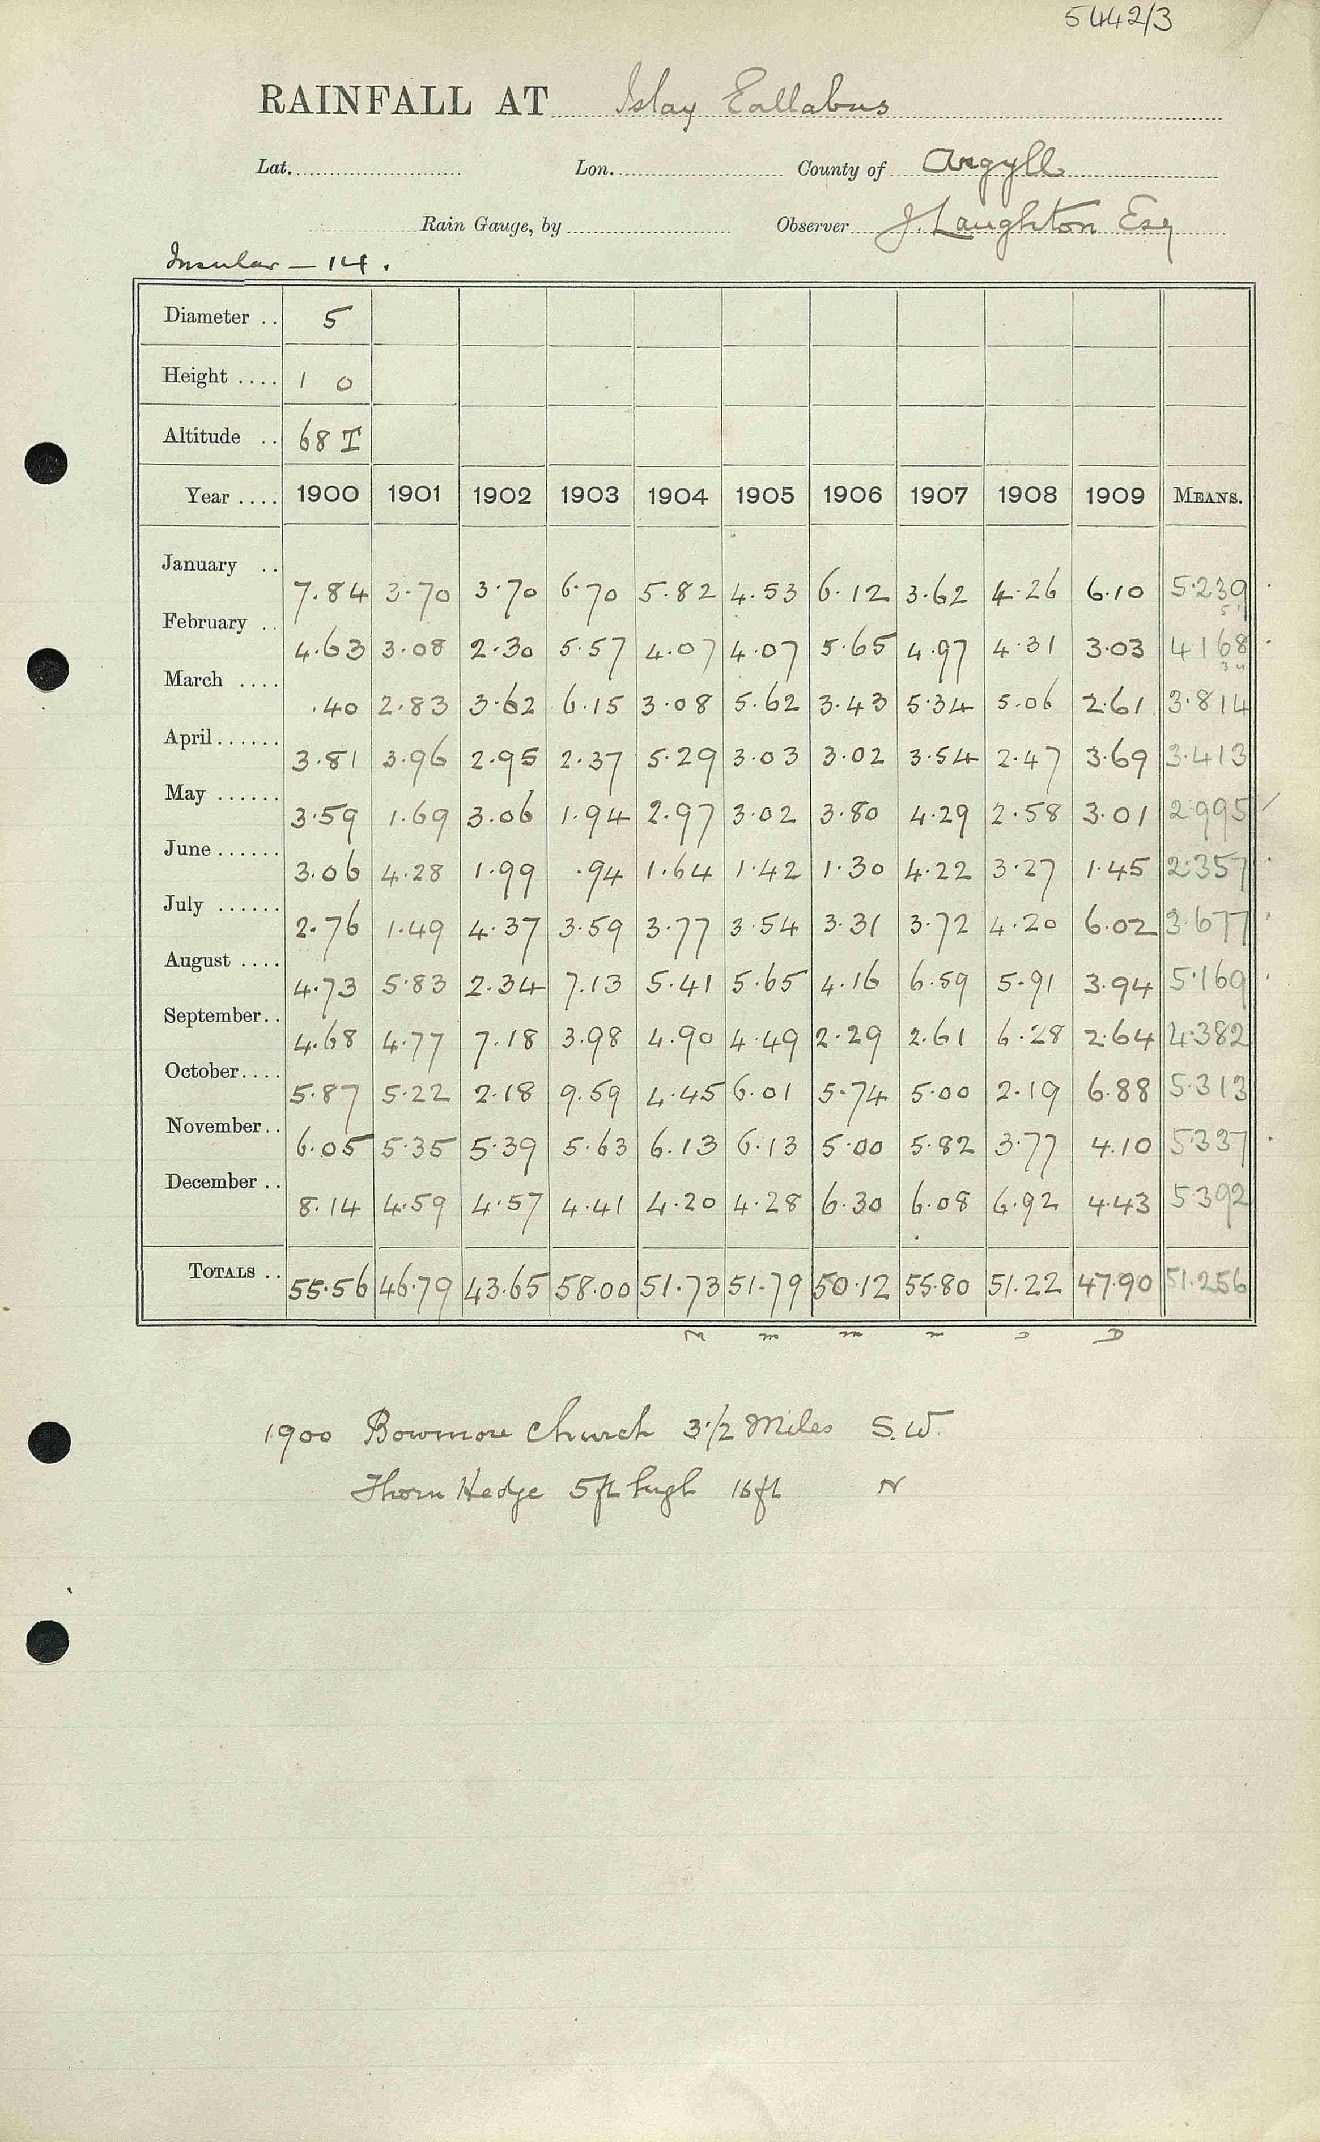 5442/3
RAINFALL AT Islay Eallabus
Lat. Lon. County of Argyll
Rain Gauge, by Observer J. Laughton Esq
Insular — 14.
Diameter .. 5
Height .... 1 0
Altitude .. 68 T
Year .... 1900 1901 1902 1903 1904 1905 1906 1907 1908 1909 MEANS.
January .. 7.84 3.70 3.70 6.70 5.82 4.53 6.12 3.62 4.26 6.10 5.239
February .. 4.63 3.08 2.30 5.57 4.07 4.07 5.65 4.97 4.31 3.03 4.168
March .... .40 2.83 3.62 6.15 3.08 5.62 3.43 5.34 5.06 2.61 3.814
April ...... 3.81 3.96 2.95 2.37 5.29 3.03 3.02 3.54 2.47 3.69 3.413
May ...... 3.59 1.69 3.06 1.94 2.97 3.02 3.80 4.29 2.58 3.01 2.995
June ...... 3.06 4.28 1.99 .94 1.64 1.42 1.30 4.22 3.27 1.45 2.357
July ...... 2.76 1.49 4.37 3.59 3.77 3.54 3.31 3.72 4.20 6.02 3.677
August .... 4.73 5.83 2.34 7.13 5.41 5.65 4.16 6.59 5.91 3.94 5.169
September.. 4.68 4.77 7.18 3.98 4.90 4.49 2.29 2.61 6.28 2.64 4.382
October.... 5.87 5.22 2.18 9.59 4.45 6.01 5.74 5.00 2.19 6.88 5.313
November.. 6.05 5.35 5.39 5.63 6.13 6.13 5.00 5.82 3.77 4.10 5.337
December .. 8.14 4.59 4.57 4.41 4.20 4.28 6.30 6.08 6.92 4.43 5.392
TOTALS .. 55.56 46.79 43.65 58.00 51.73 51.79 50.12 55.80 51.22 47.90 51.256
1900 Bowmore Church 3 1/2 Miles S.W.
Thorn Hedge 5ft high 16ft N